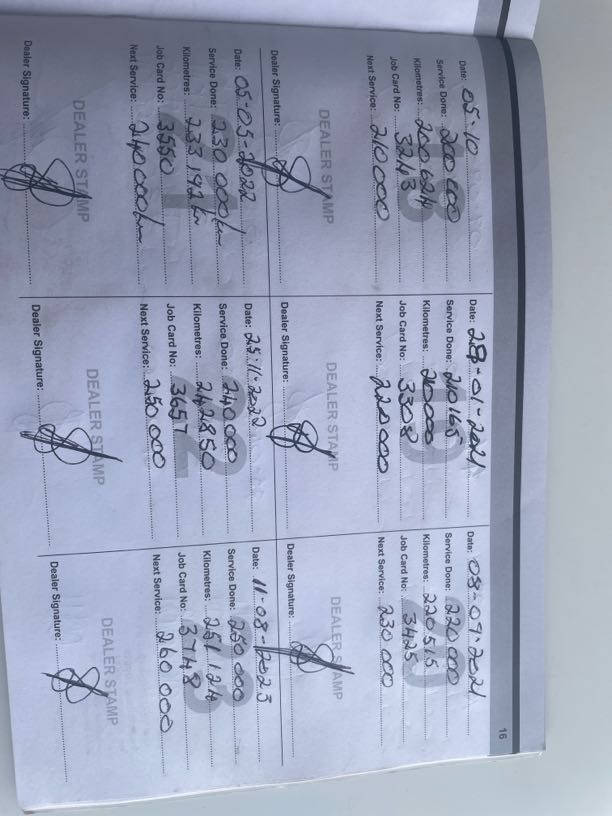 16
18
Date: 05-10
Service Done: 200 000
Kilometres: 200 624
Job Card No: 3243
Next Service: 210.000
DEALER STAMP
Dealer Signature:
19
Date: 28-01-2021
Service Done: 210165
Kilometres:
Job Card No: 3308
Next Service: 220000
DEALER STAMP
Dealer Signature:
20
Date:
Service Done: 220 000
Kilometres: 220 515
Job Card No: 3425
Next Service: 230 000
DEALER STAMP
Dealer Signature:
21
Date: 05-05-2022
Service Done: 230 000km
Kilometres: 233 142km
Job Card No: 3550
Next Service: 240 000km
DEALER STAMP
Dealer Signature:
22
Date: 25-11-2022
Service Done: 240000
Kilometres: 242850
Job Card No: 3657
Next Service: 250.000
DEALER STAMP
Dealer Signature:
23
Date: 11-08-2023
Service Done: 250 000
Kilometres: 251 124
Job Card No: 3748
Next Service: 260 000
DEALER STAMP
Dealer Signature: